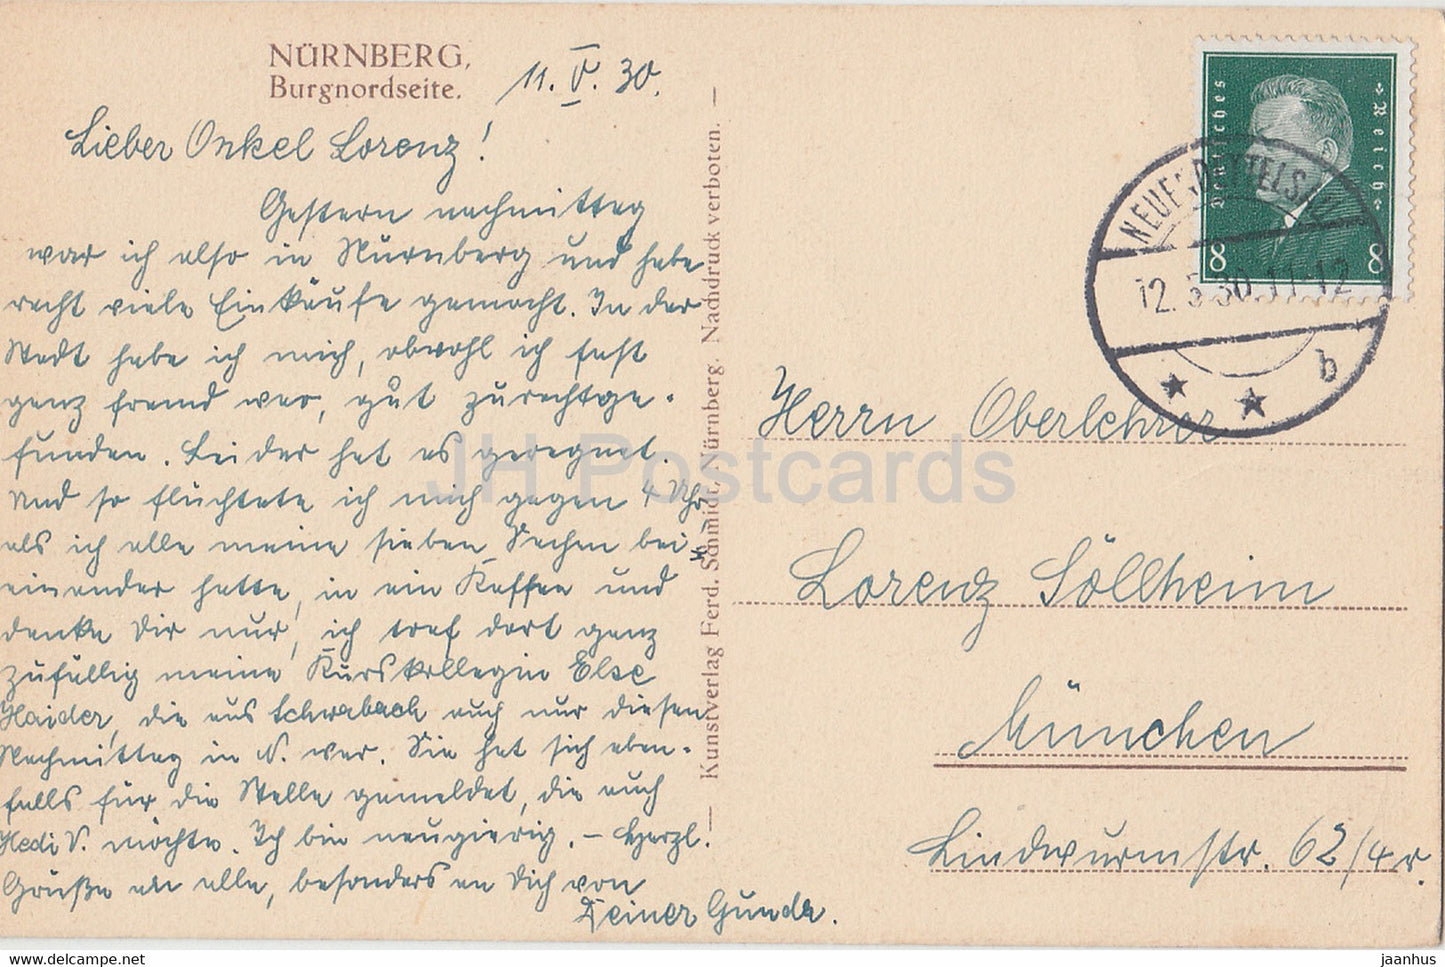 NÜRNBERG,
Burgnordseite.
11. V. 30.
Lieber Onkel Lorenz!
Gestern nachmittag
war ich also in Nürnberg und habe
recht viele Einkäufe gemacht. In der
Stadt habe ich mich, obwohl ich fast
ganz fremd war, gut zurechtge-
funden. Leider hat es geregnet.
Und so flüchtete ich mich gegen 4 Uhr,
als ich alle meine sieben Sachen bei-
einander hatte, in ein Kaffee und
denke Dir nur, ich traf dort ganz
zufällig meine Kurskollegin Else
Haider, die aus Schwabach auch nur diesen
Nachmittag in N. war. Sie hat sich eben-
falls für die Stelle gemeldet, die auch
Hedi V. möchte. Ich bin neugierig. – Herzl.
Grüße an alle, besonders an Dich von
Deiner Gunda.
Kunstverlag Ferd. Schmidt, Nürnberg. Nachdruck verboten.
Deutsches Reich
8 8
NEUENDETTELSAU
12.5.30.11-12
b
Herrn Oberlehrer
Lorenz Söllheim
München
Lindwurmstr. 62/4 r.
JH Postcards
jaanhus